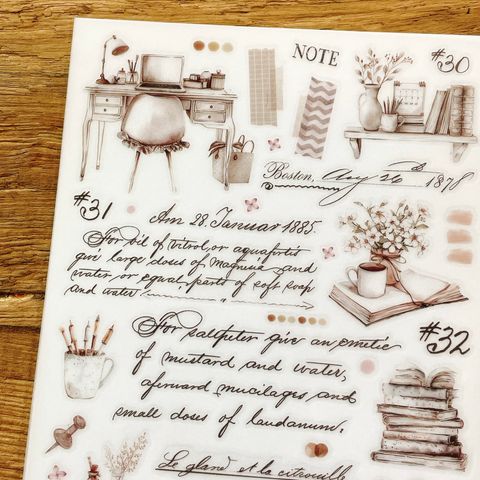 NOTE
#30
Boston, Aug 26 1878
#31
Am 28. Januar 1885.
For oil of vitrol, or aquafortis
give large doses of Magnesia and
water, or equal parts of soft soap
and water
#32
For saltpeter give an emetic
of mustard and water,
afterward mucilages and
small doses of laudanum.
Le gland et la citrouille